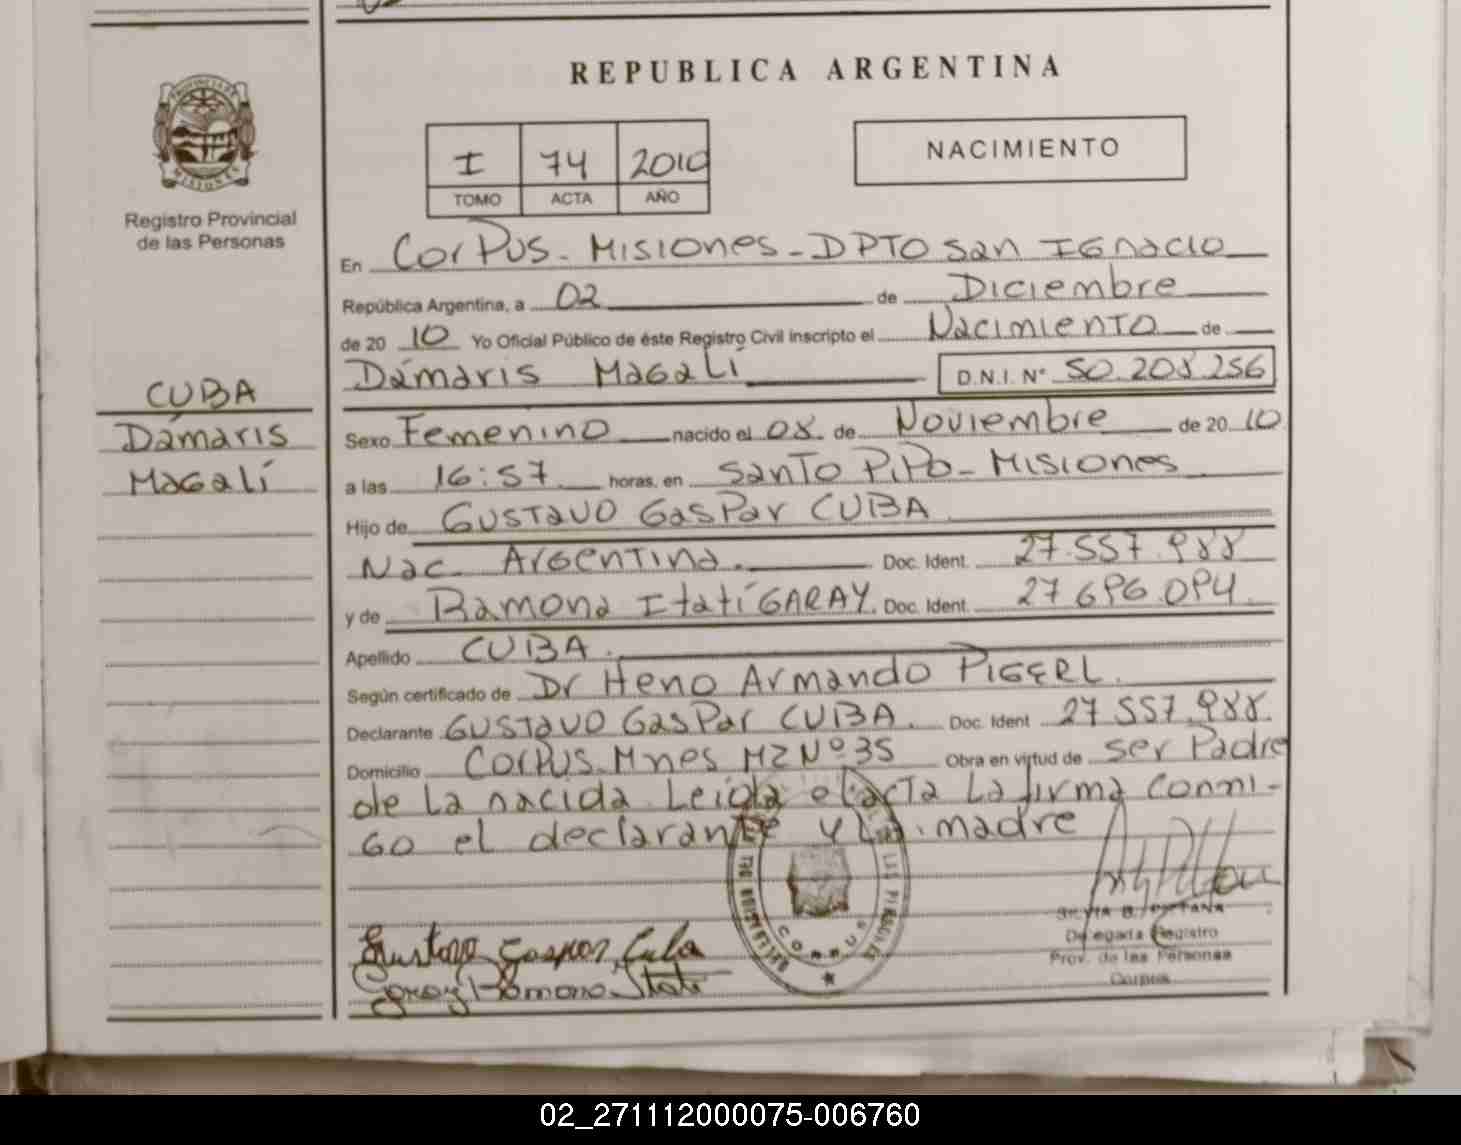 REPUBLICA ARGENTINA
PROVINCIA DE MISIONES
Registro Provincial
de las Personas
I 74 2010
TOMO ACTA AÑO
NACIMIENTO
CUBA
Dámaris
Magalí
En Corpus - Misiones - DPTO San Ignacio
República Argentina, a 02 de Diciembre
de 2010 Yo Oficial Público de éste Registro Civil inscripto el Nacimiento de
Dámaris Magalí D.N.I. Nº 50.208.256
Sexo Femenino nacido el 08 de Noviembre de 2010
a las 16:57 horas, en Santo Pipo - Misiones
Hijo de Gustavo Gaspar CUBA
Nac. Argentina. Doc. Ident. 27.557.988
y de Ramona Itatí GARAY. Doc. Ident. 27 696.094
Apellido CUBA.
Según certificado de Dr Heno Armando
Declarante Gustavo Gaspar CUBA. Doc. Ident 27 557.988.
Domicilio Corpus. Mnes MZ Nº 35 Obra en virtud de ser Padre
de la nacida. Leida el acta La firma conmi-
go el declarante y la madre
CORPUS
Gustavo Gaspar Cuba
Garay Ramona Itatí
Delegada Registro
Prov. de las Personas
Corpus
02_271112000075-006760